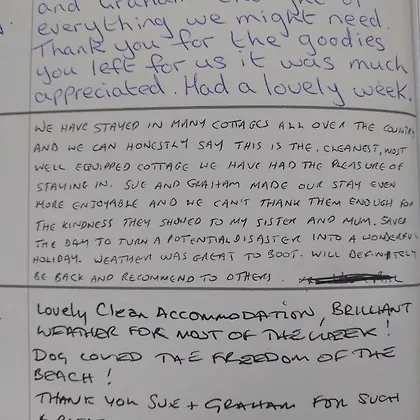 and Graham
everything we might need.
Thank you for the goodies
you left for us it was much
appreciated. Had a lovely week.
WE HAVE STAYED IN MANY COTTAGES ALL OVER THE COUNTRY
AND WE CAN HONESTLY SAY THIS IS THE. CLEANEST, MOST
WELL EQUIPPED COTTAGE WE HAVE HAD THE PLEASURE OF
STAYING IN. SUE AND GRAHAM MADE OUR STAY EVEN
MORE ENJOYABLE AND WE CAN'T THANK THEM ENOUGH FOR
THE KINDNESS THEY SHOWED TO MY SISTER AND MUM. SAVED
THE DAY TO TURN A POTENTIAL DISASTER INTO A WONDERFUL
HOLIDAY. WEATHER WAS GREAT TO BOOT. WILL DEFINATELY
BE BACK AND RECOMMEND TO OTHERS.
Lovely Clean Accommodation, BRILLIANT
WEATHER FOR MOST OF THE WEEK!
DOG LOVED THE FREEDOM OF THE
BEACH!
THANK YOU SUE + GRAHAM FOR SUCH